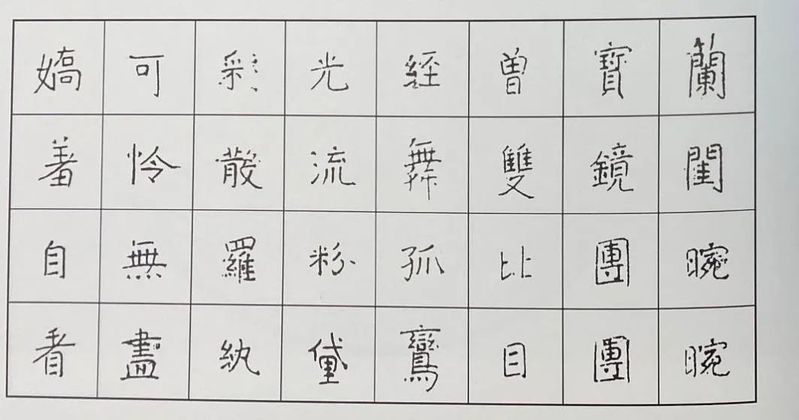 蘭閨晼晼
寶鏡團團
曽雙比目
経舞孤鸞
光流粉黛
彩散羅紈
可怜無盡
嬌羞自看